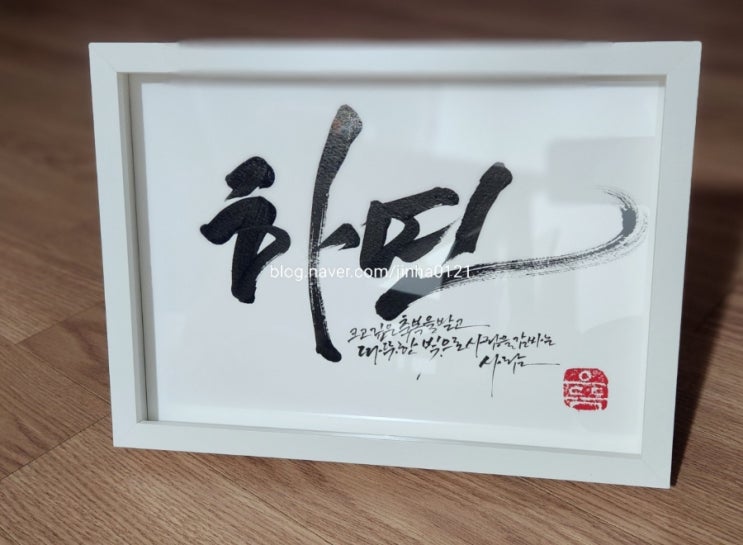 하린
blog.naver.com/jinha0121
크고 깊은 축복을 받고
따뜻한 빛으로 감싸는
사람